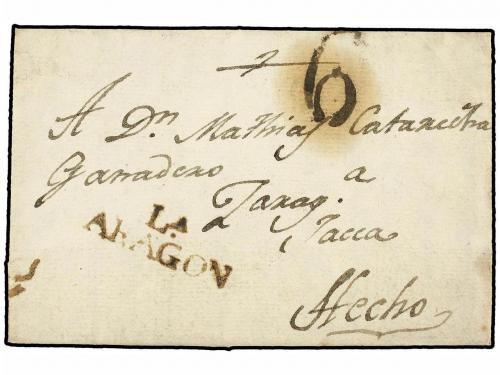 6
A Dn. Mathias Catarecha
Ganadero a
Zarag.
Jacca
LA
ARAGON
Hecho